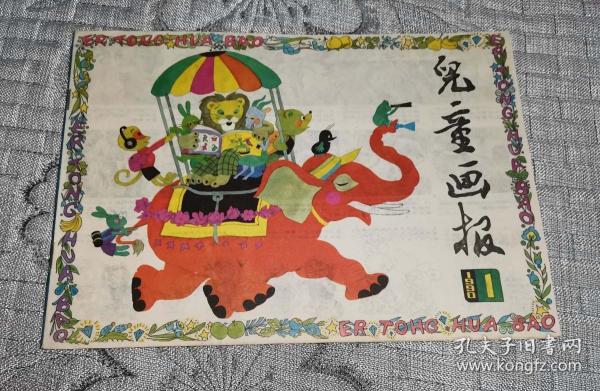 ER TONG HUA BAO
ER TONG HUA BAO
ER TONG HUA BAO
兒童画报
1990
1
ER TONG HUA BAO
孔夫子旧书网
www.kongfz.com